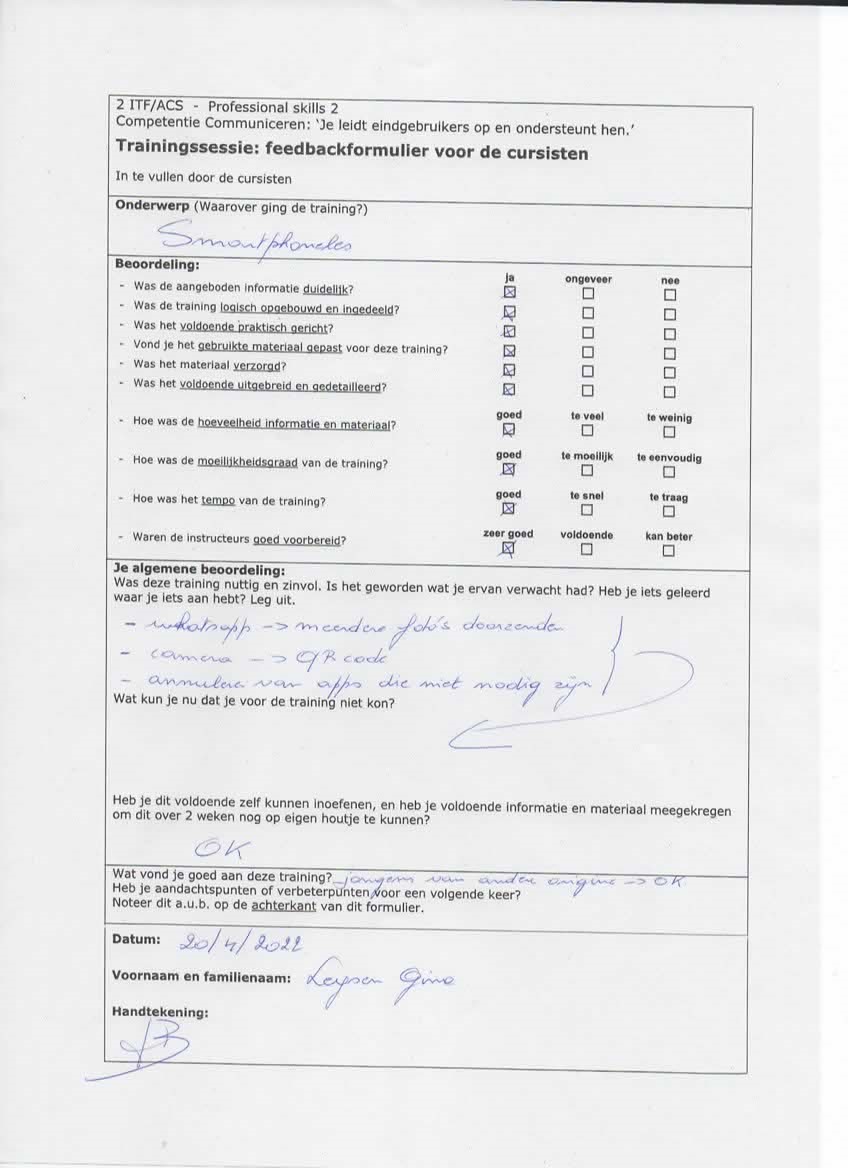 2 ITF/ACS - Professional skills 2
Competentie Communiceren: 'Je leidt eindgebruikers op en ondersteunt hen.'
Trainingssessie: feedbackformulier voor de cursisten
In te vullen door de cursisten
Onderwerp (Waarover ging de training?)
Beoordeling:
ja ongeveer nee
- Was de aangeboden informatie duidelijk? ☒ ☐ ☐
- Was de training logisch opgebouwd en ingedeeld? ☒ ☐ ☐
- Was het voldoende praktisch gericht? ☒ ☐ ☐
- Vond je het gebruikte materiaal gepast voor deze training? ☒ ☐ ☐
- Was het materiaal verzorgd? ☒ ☐ ☐
- Was het voldoende uitgebreid en gedetailleerd? ☒ ☐ ☐
goed te veel te weinig
- Hoe was de hoeveelheid informatie en materiaal? ☒ ☐ ☐
goed te moeilijk te eenvoudig
- Hoe was de moeilijkheidsgraad van de training? ☒ ☐ ☐
goed te snel te traag
- Hoe was het tempo van de training? ☒ ☐ ☐
zeer goed voldoende kan beter
- Waren de instructeurs goed voorbereid? ☒ ☐ ☐
Je algemene beoordeling:
Was deze training nuttig en zinvol. Is het geworden wat je ervan verwacht had? Heb je iets geleerd
waar je iets aan hebt? Leg uit.
- whatsapp -> meerdere foto's doorzenden
- camera -> QR code
- annuleren van apps die niet nodig zijn
Wat kun je nu dat je voor de training niet kon?
Heb je dit voldoende zelf kunnen inoefenen, en heb je voldoende informatie en materiaal meegekregen
om dit over 2 weken nog op eigen houtje te kunnen?
OK
Wat vond je goed aan deze training? jongens van andere origine -> OK
Heb je aandachtspunten of verbeterpunten voor een volgende keer?
Noteer dit a.u.b. op de achterkant van dit formulier.
Datum: 20/4/2022
Voornaam en familienaam: Leysen Gina
Handtekening: